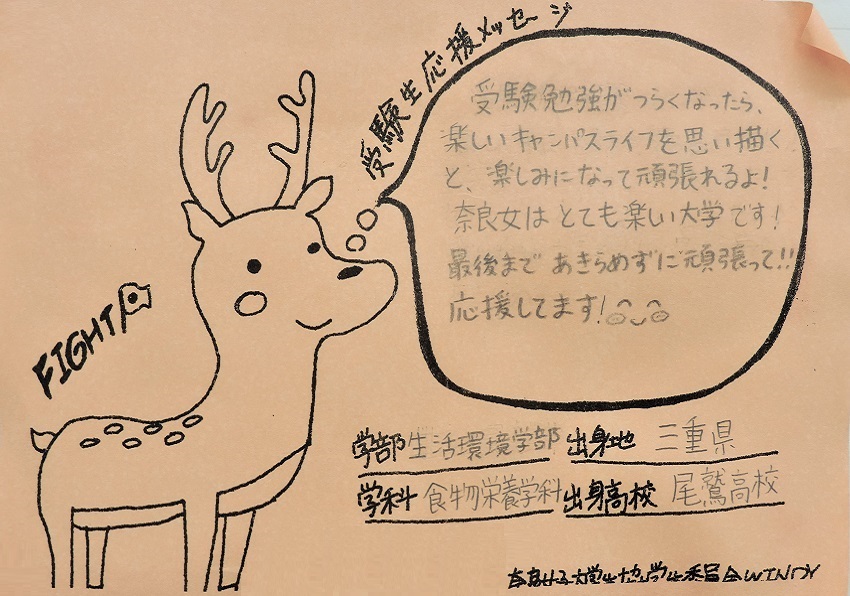 受験生応援メッセージ
受験勉強がつらくなったら、
楽しいキャンパスライフを思い描く
と、楽しみになって頑張れるよ!
奈良女はとても楽しい大学です!
最後まであきらめずに頑張って!!
応援してます!
FIGHT
学部 生活環境学部 出身地 三重県
学科 食物栄養学科 出身高校 尾鷲高校
奈良女子大学生協学生委員会WINDY